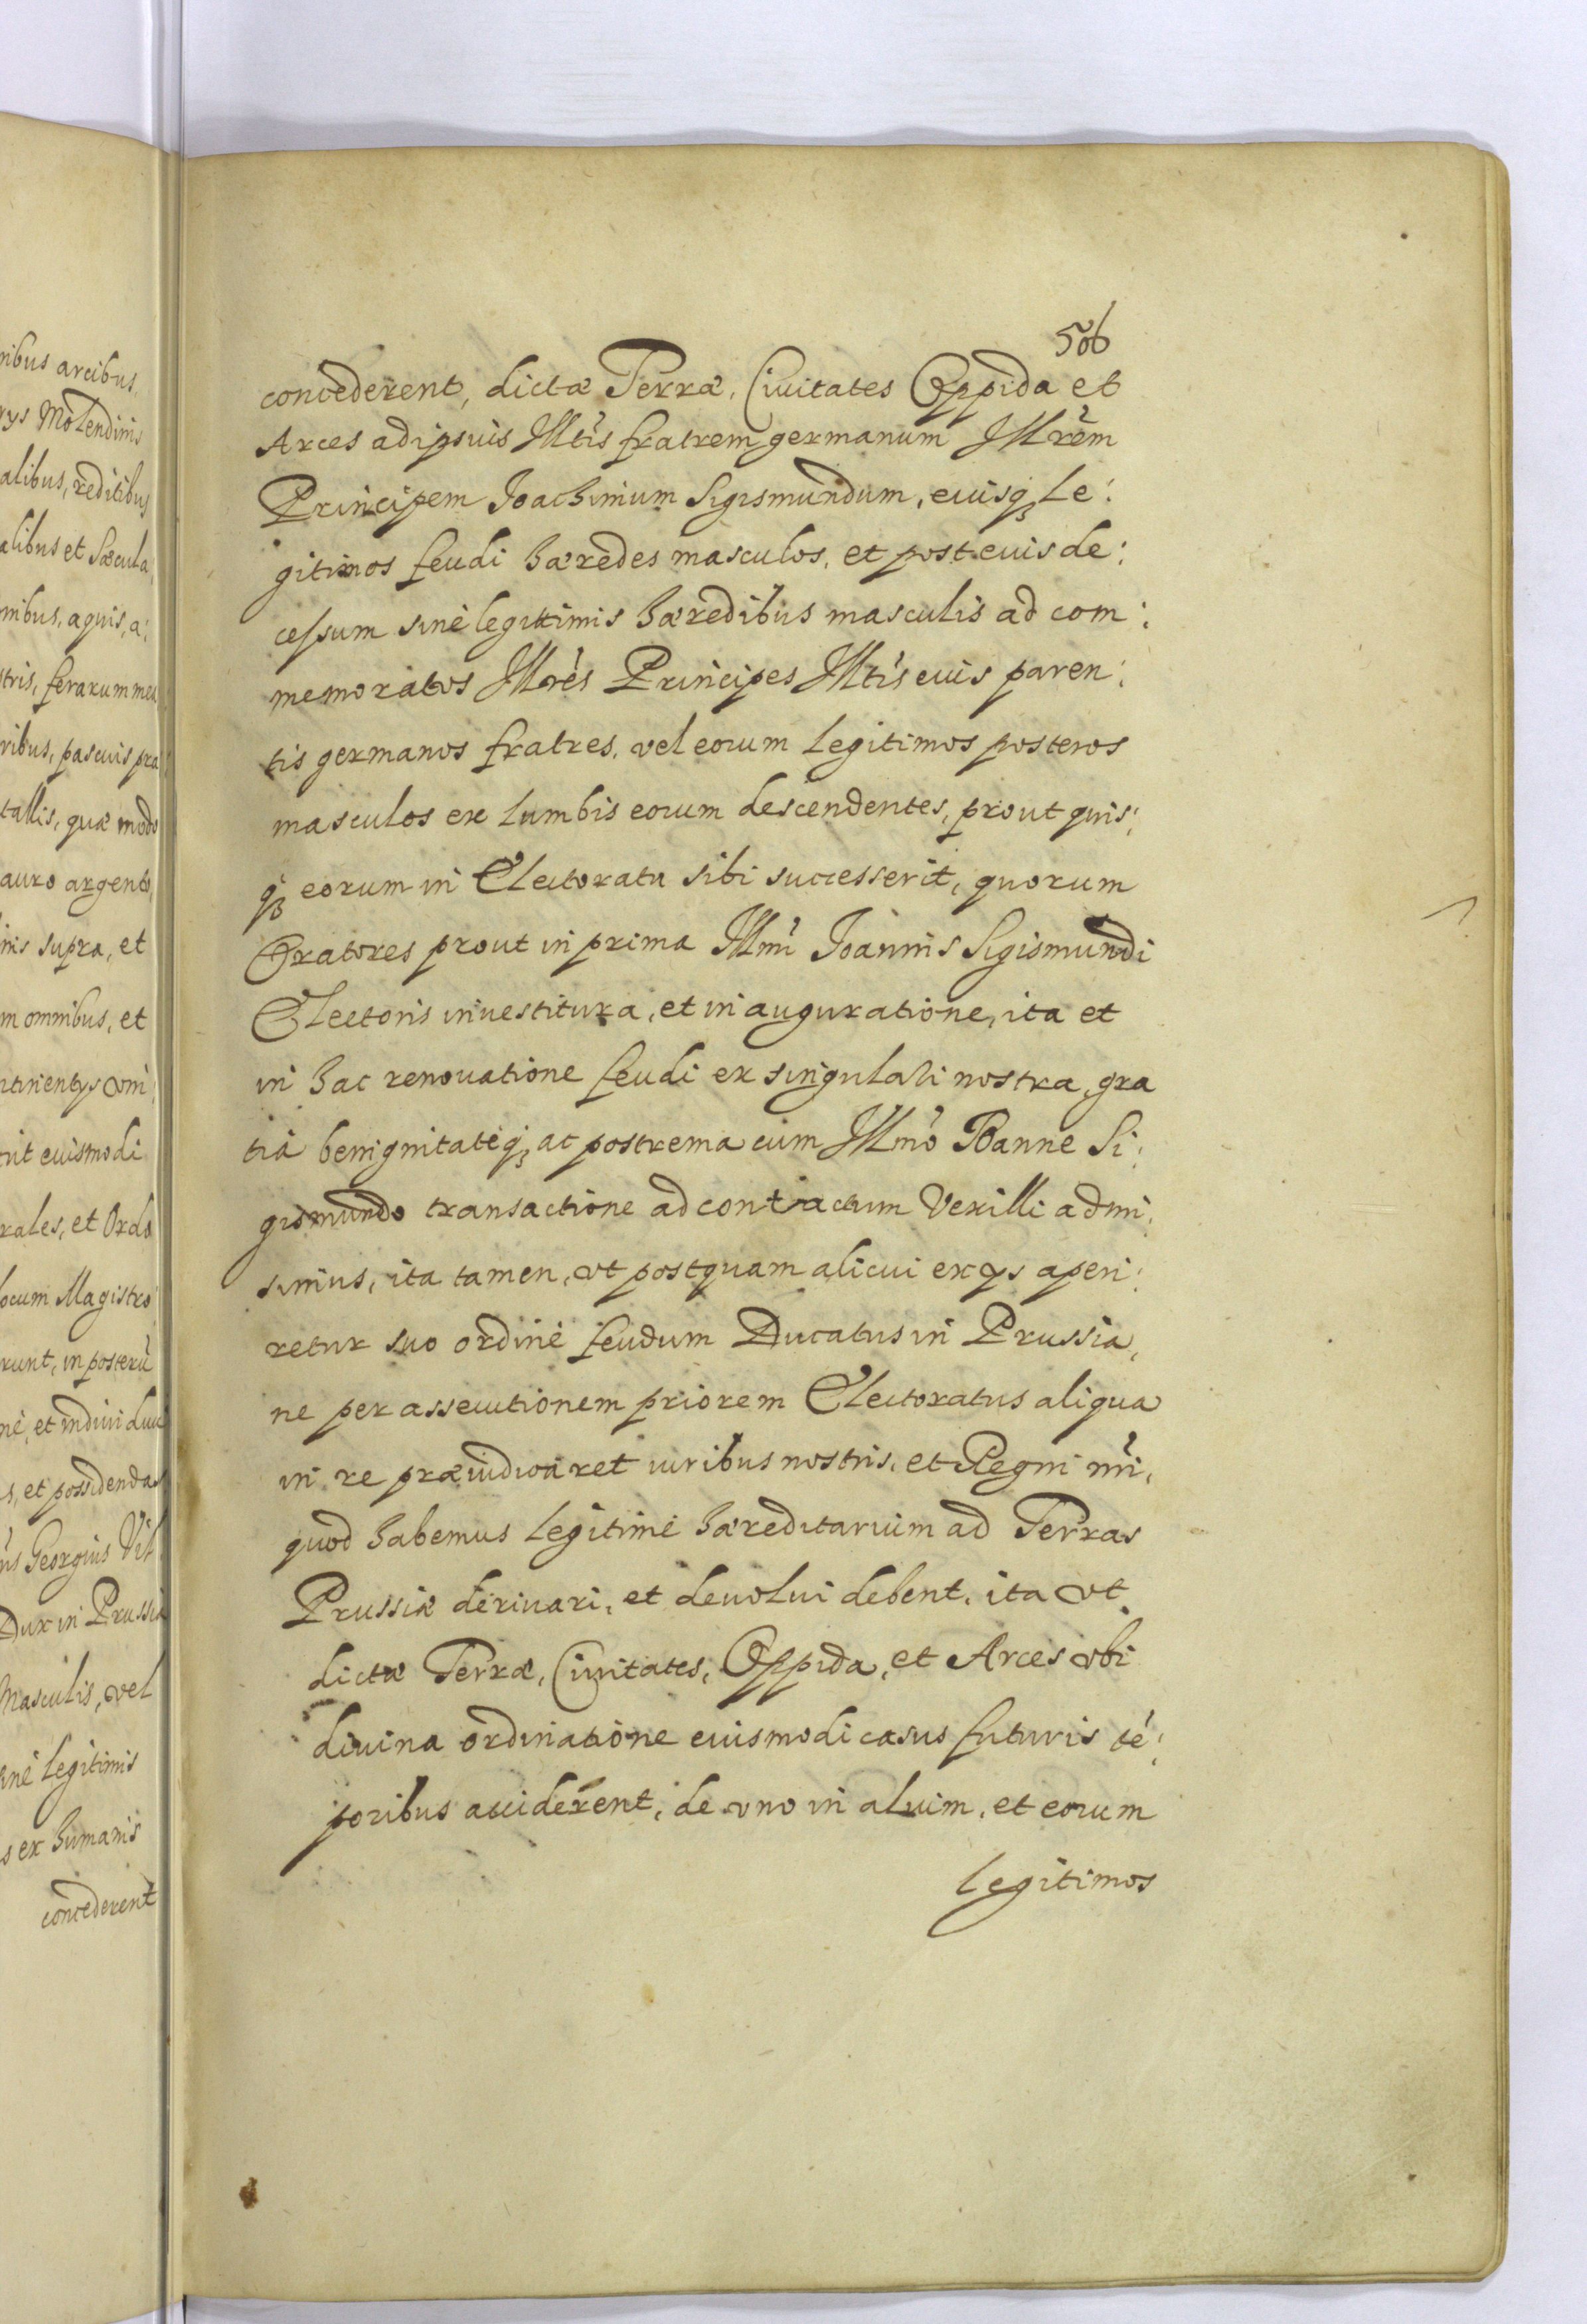 nibus arcibus,
rys Molendinis
alibus, reditibus
alibus et Sæcula
nibus, aquis, a:
stris, ferarum mea
ribus, pascuis pra
tallis, quæ modo
auro argento,
inis supra, et
m omnibus, et
rtinentys vni
rit euismodi
rales, et Ordo
locum Magistro
runt, in posterũ
nè, et indiuiduu
s, et possidendas
ñs Georgius Vil
Dux in Prussia
Masculis, vel
sinè legitimis
s ex humanis
concederent
506
concederent, dictæ Terræ, Ciuitates Oppida et
Arces ad ipsuis Illtis fratrem germanum Illrem
Principem Joachimum Sigismundum, euisq̨ Le:
gitimos feudi hæredes masculos, et post euis de:
cessum sinè legittimis hæredibus masculis ad com:
memoratos Illres Principes Illtis euis paren:
tis germanos fratres, vel eorum legitimos posteros
masculos ex lumbis eorum descendentes, prout quis:
q̨ eorum in Electoratu sibi successerit, quorum
Oratores prout in prima Illmi Joannis Sigismundi
Electoris inuestitura, et inauguratione, ita et
in hac renouatione feudi ex singulari nostra gra
tia benignitateq̨ ac postrema cum Illmo Joanne Si:
gismundo transactione ad contractum Vexilli admi:
simus, ita tamen, vt postquam alicui ex ys aperi:
retur suo ordinè feudum Ducatus in Prussia,
ne per assecutionem priorem Electoratus aliqua
in re præiudicaret iuribus nostris, et Regni nri,
quod habemus legitimè hæreditarium ad Terras
Prussiæ deriuari, et deuolui debent, ita vt
dictæ Terræ, Ciuitates, Oppida, et Arces vbi
diuina ordinatione euismodi casus futuris té:
poribus acciderent, de vno in alium, et eorum
legitimos